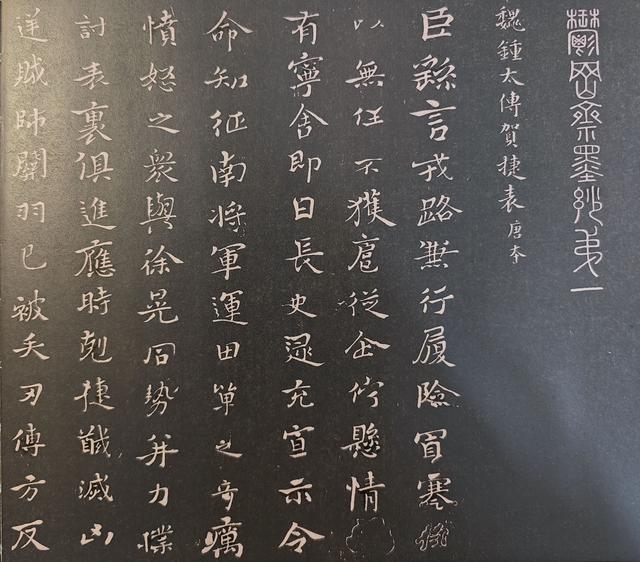 鬱岡齋墨妙弟一
魏鍾太傅賀捷表 唐夲
臣繇言戎路兼行履險冒寒
以無任不獲扈從企佇懸情
有寧舍即日長史逯充宣示令
命知征南將軍運田單之奇厲
憤怒之衆與徐晃同勢并力撲
討表裏俱進應時剋捷馘滅凶
逆賊帥關羽已被矢刃傅方反